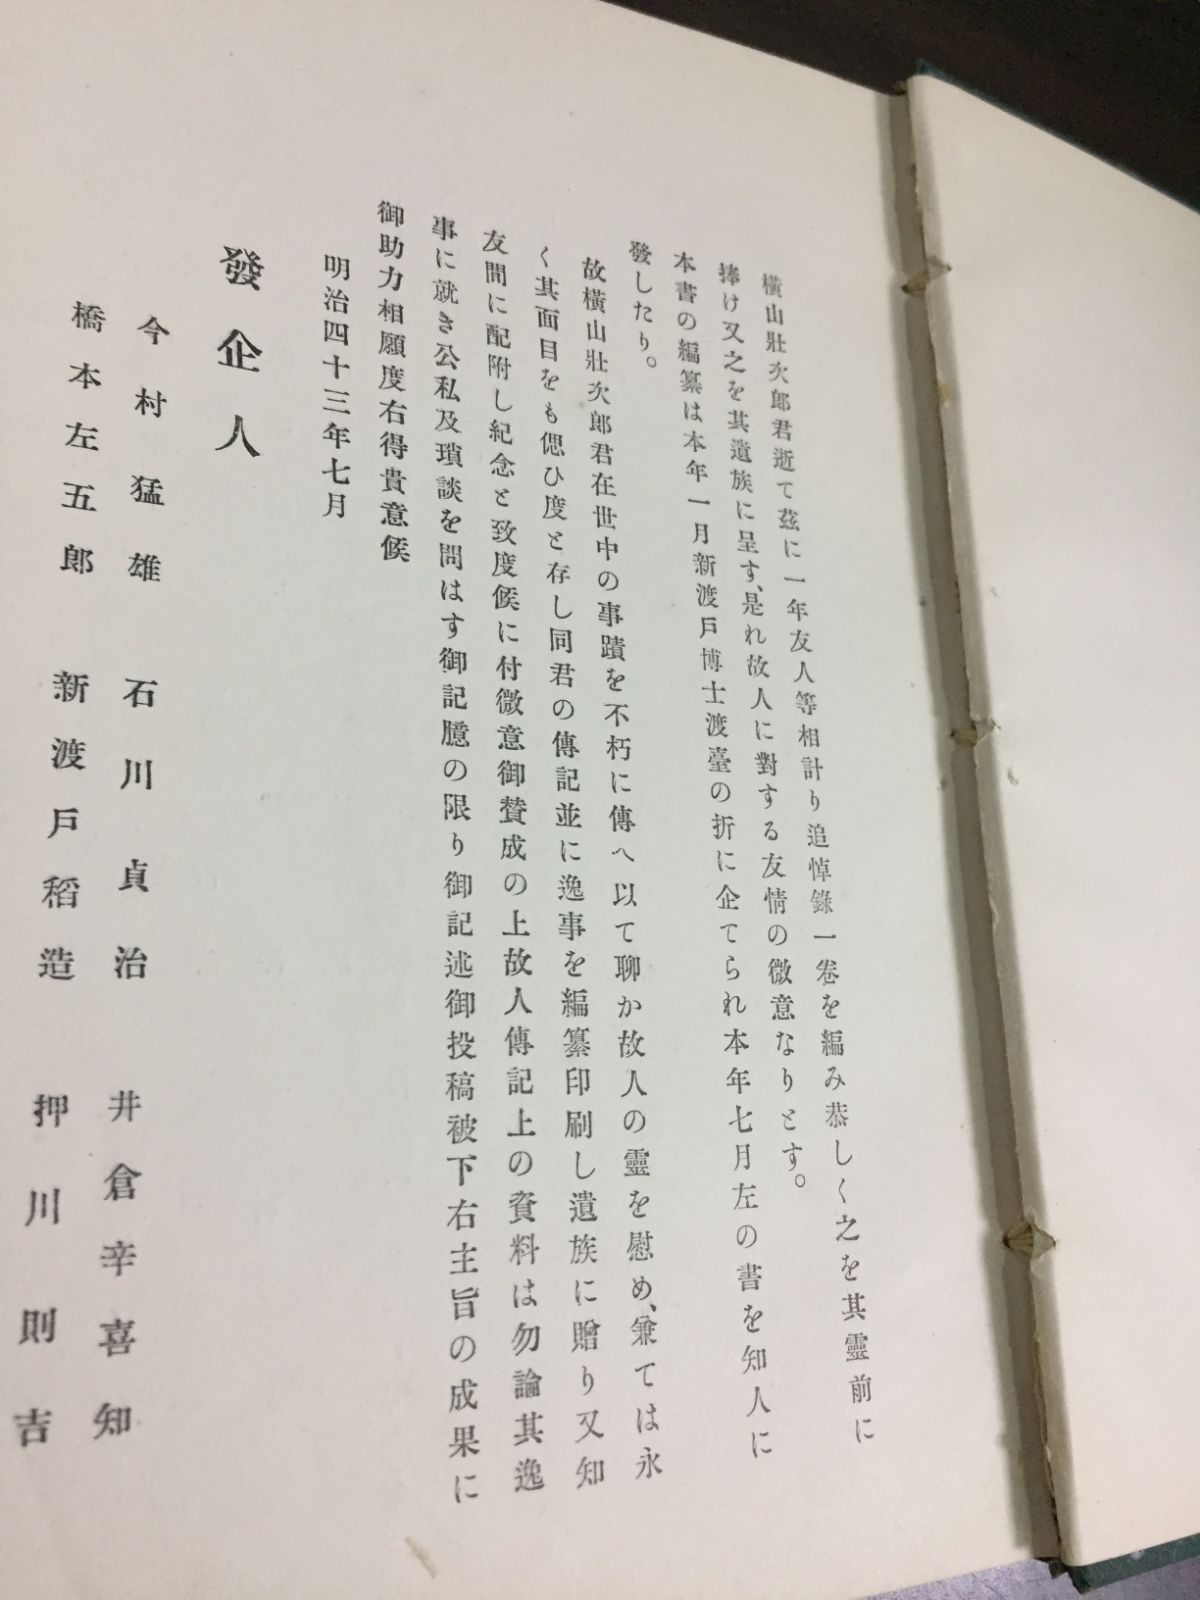 橫山壯次郎君逝て茲に一年友人等相計り追悼錄一卷を編み恭しく之を其靈前に
捧け又之を其遺族に呈す、是れ故人に對する友情の微意なりとす。
本書の編纂は本年一月新渡戶博士渡臺の折に企てられ本年七月左の書を知人に
發したり。
故橫山壯次郎君在世中の事蹟を不朽に傳へ以て聊か故人の靈を慰め、兼ては永
く其面目をも偲ひ度と存し同君の傳記並に逸事を編纂印刷し遺族に贈り又知
友間に配附し紀念と致度候に付微意御賛成の上故人傳記上の資料は勿論其逸
事に就き公私及瑣談を問はす御記臆の限り御記述御投稿被下右主旨の成果に
御助力相願度右得貴意候
明治四十三年七月
發企人
今村猛雄 石川貞治 井倉辛喜知
橋本左五郎 新渡戶稻造 押川則吉